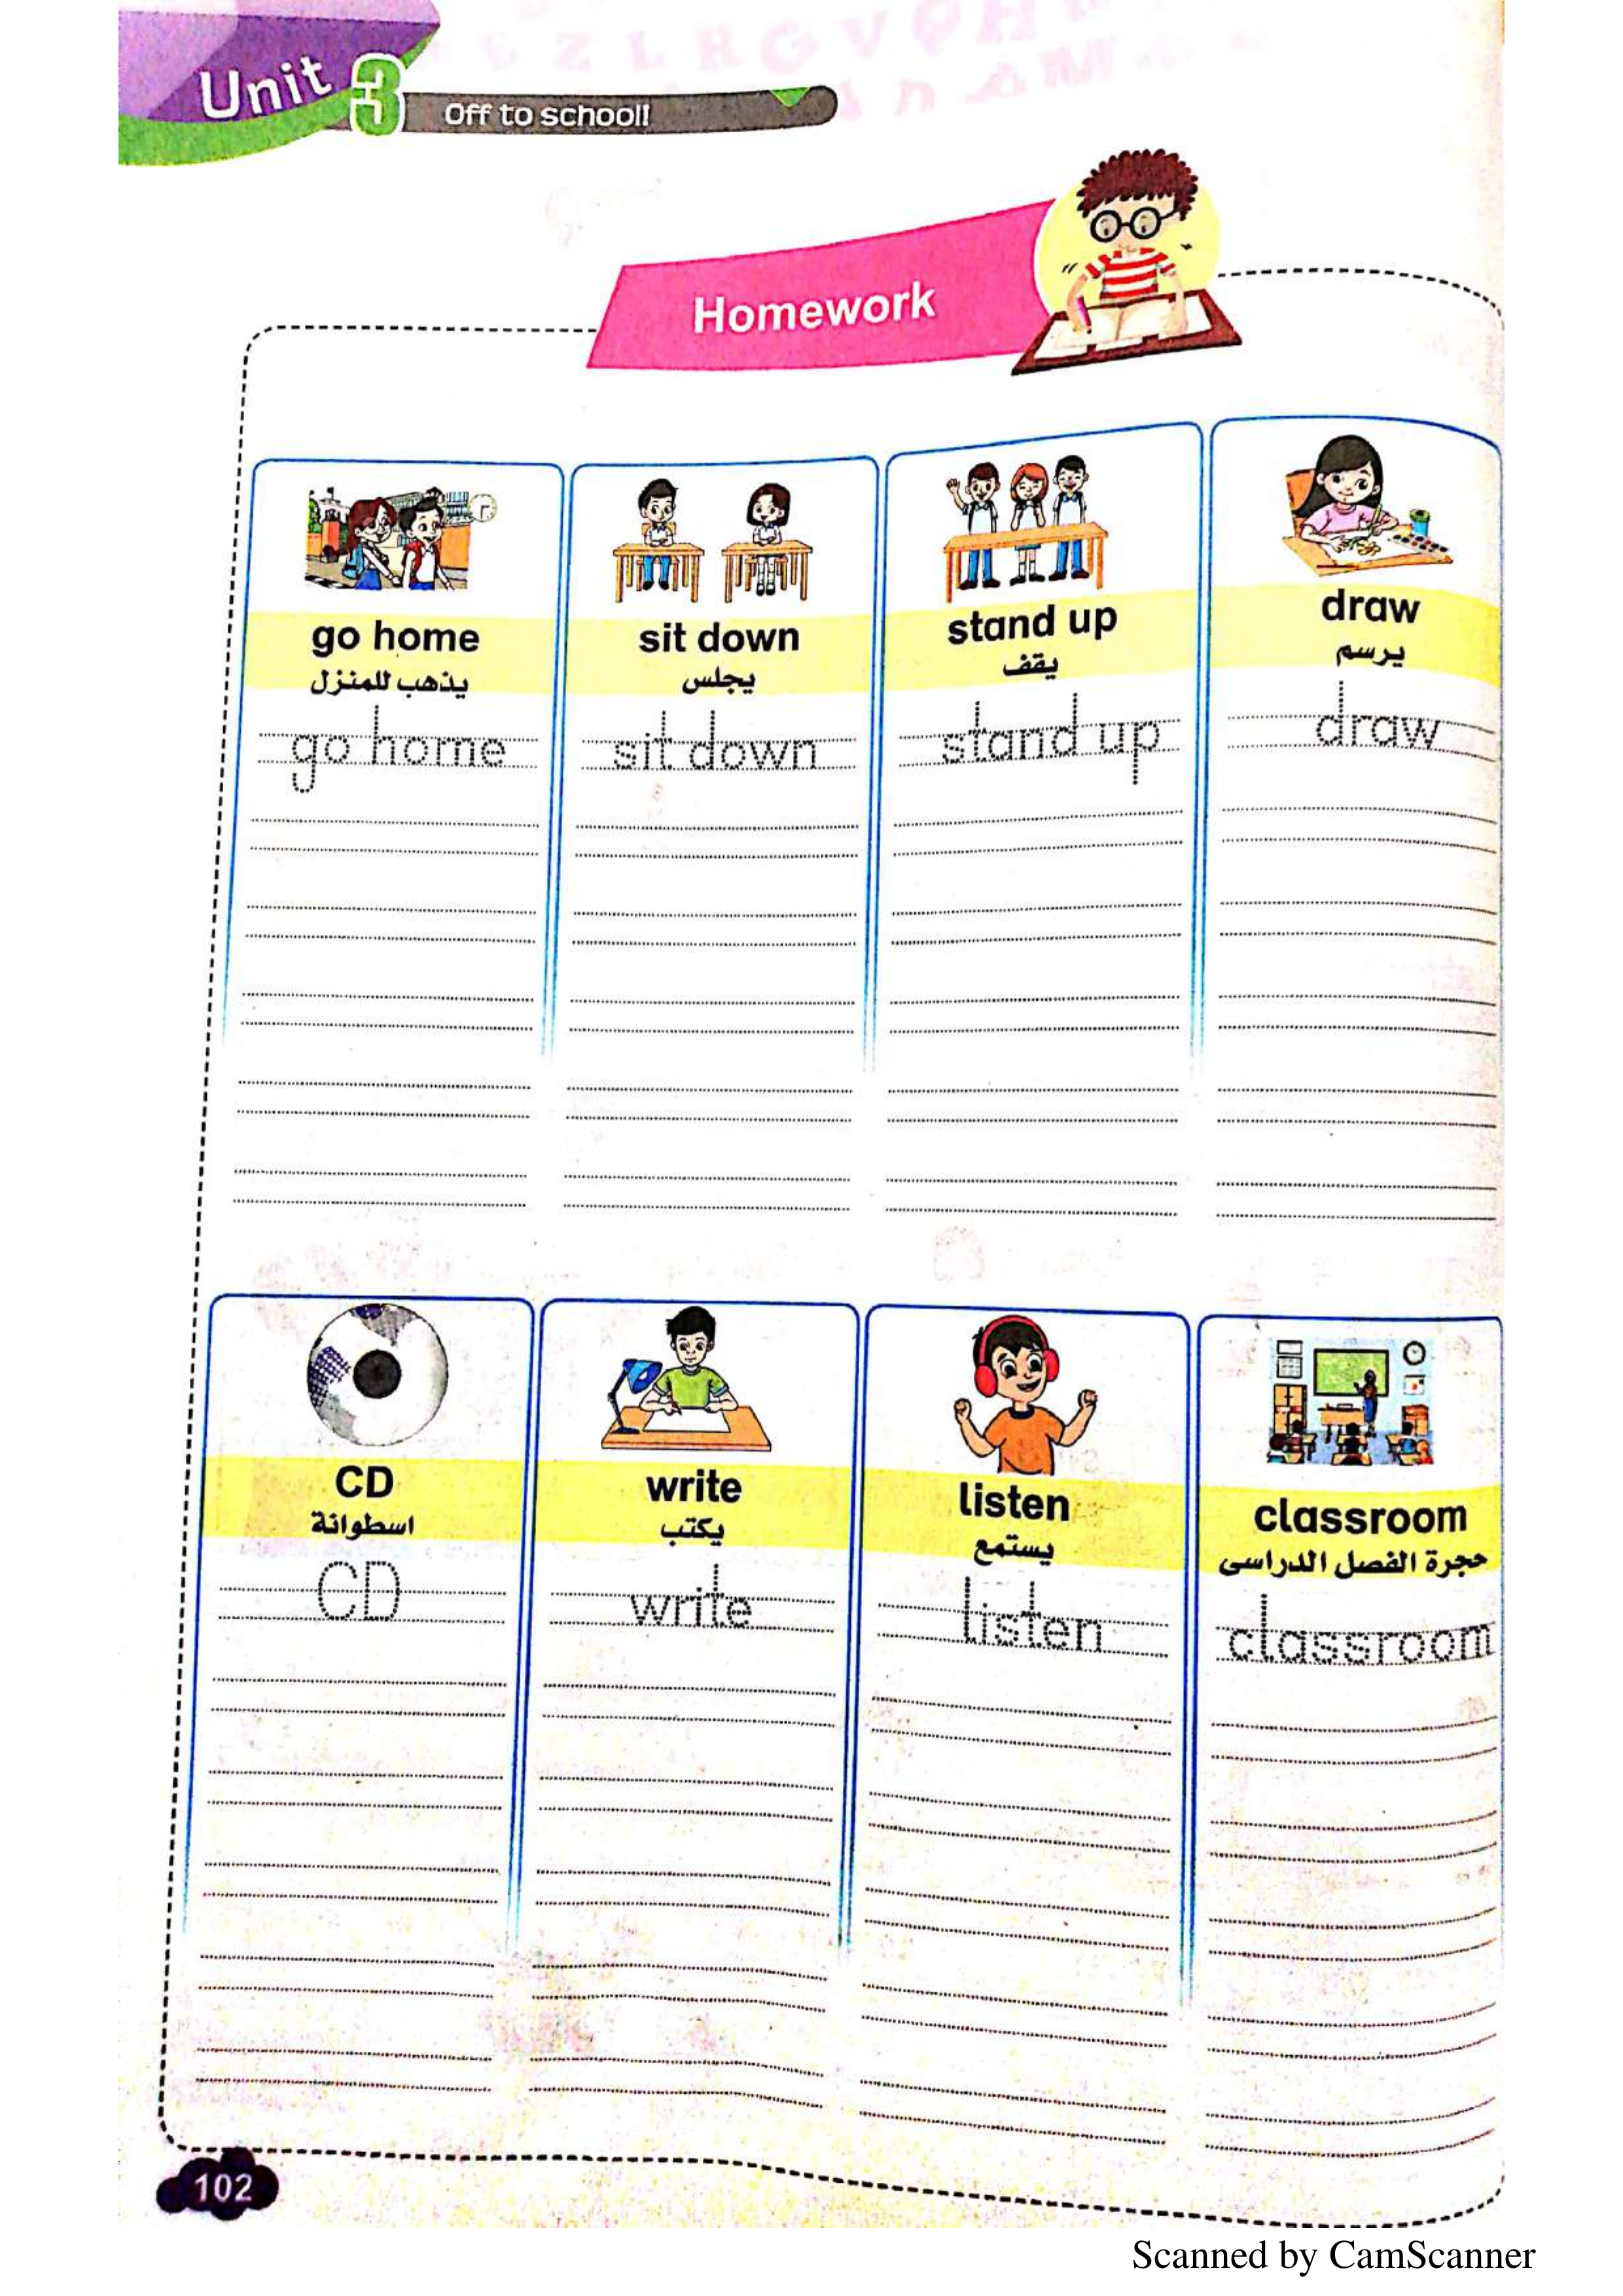 Unit 3
Off to school!
Homework
go home
يذهب للمنزل
go home
sit down
يجلس
sit down
stand up
يقف
stand up
draw
يرسم
draw
CD
اسطوانة
CD
write
يكتب
write
listen
يستمع
listen
classroom
حجرة الفصل الدراسى
classroom
102
Scanned by CamScanner